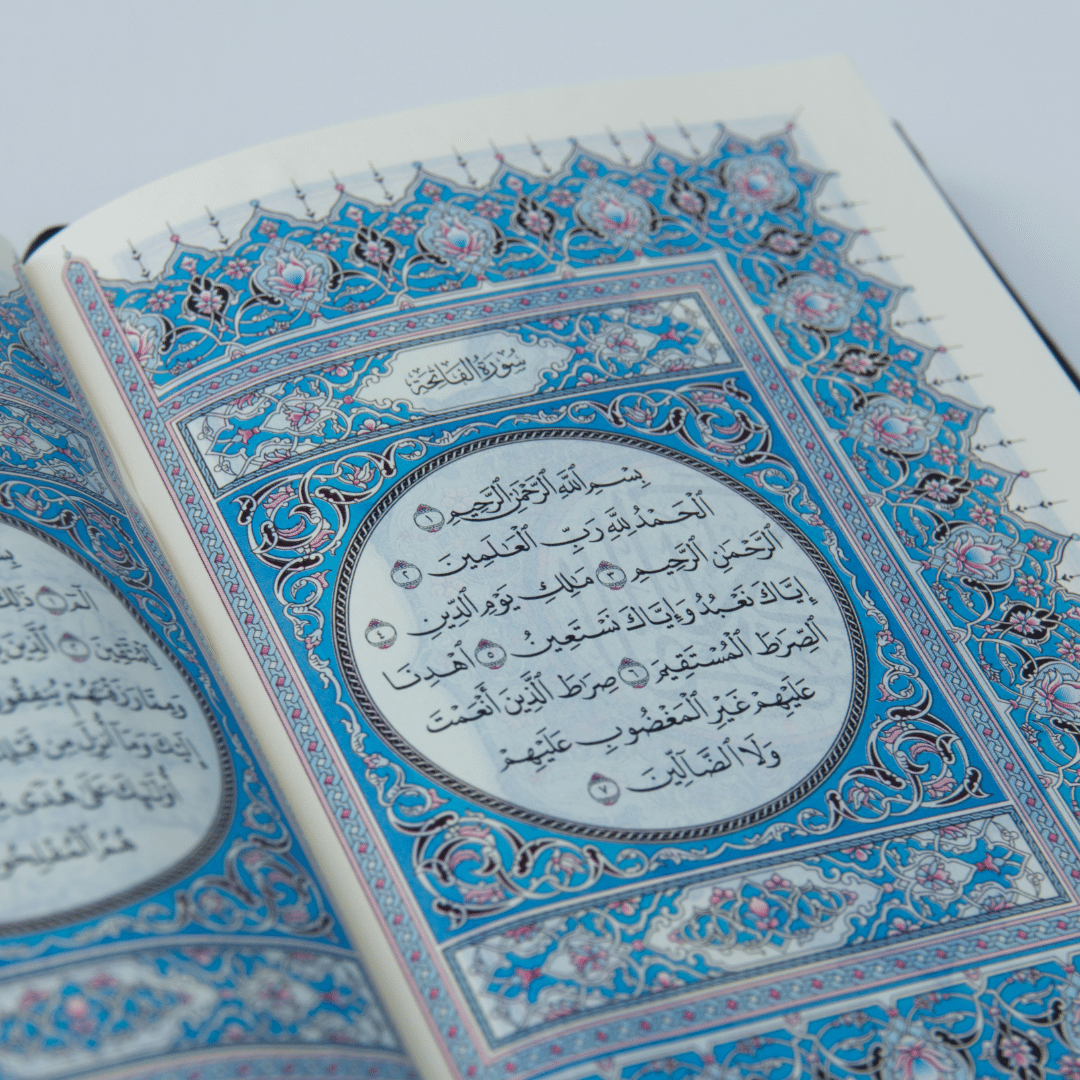 سُورَةُ الفَاتِحَةِ
بِسْمِ ٱللَّهِ ٱلرَّحْمَٰنِ ٱلرَّحِيمِ ١
ٱلْحَمْدُ لِلَّهِ رَبِّ ٱلْعَٰلَمِينَ ٢
ٱلرَّحْمَٰنِ ٱلرَّحِيمِ ٣ مَٰلِكِ يَوْمِ ٱلدِّينِ ٤
إِيَّاكَ نَعْبُدُ وَإِيَّاكَ نَسْتَعِينُ ٥ ٱهْدِنَا
ٱلصِّرَٰطَ ٱلْمُسْتَقِيمَ ٦ صِرَٰطَ ٱلَّذِينَ أَنْعَمْتَ
عَلَيْهِمْ غَيْرِ ٱلْمَغْضُوبِ عَلَيْهِمْ
وَلَا ٱلضَّآلِّينَ ٧
الٓمٓ ١
٢ ٱلَّذِينَ
وَمِمَّا رَزَقْنَٰهُمْ يُنفِقُونَ
إِلَيْكَ وَمَآ أُنزِلَ مِن قَبْلِكَ
أُو۟لَٰٓئِكَ عَلَىٰ هُدًى
هُمُ ٱلْمُفْلِحُونَ